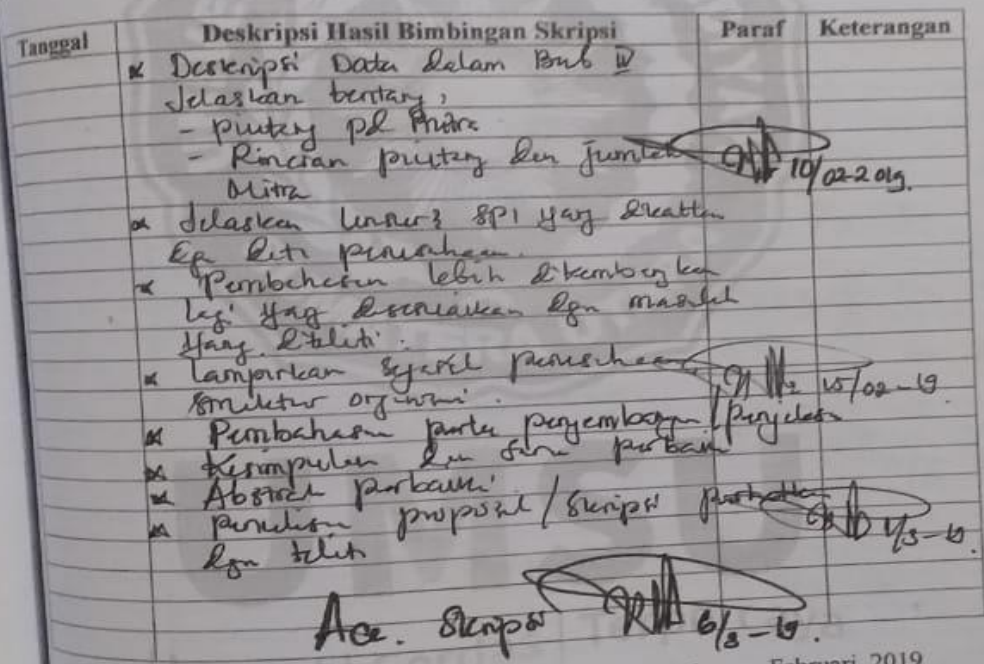 Tanggal Deskripsi Hasil Bimbingan Skripsi Paraf Keterangan
Deskripsi Data dalam Bab IV
Jelaskan tentang,
- piutang pd Mitra
- Rincian piutang dan jumlah
Mitra
10/02-2019.
Jelaskan unsur2 SPI yang dikaitkan
perusahaan.
Pembahasan lebih dikembangkan
lagi yang disesuaikan dgn masalah
yang diteliti.
Lampirkan sejarah perusahaan
struktur organisasi.
15/02-19
Pembahasan perlu pengembangan/penjelasan
Kesimpulan dan saran perbaiki
Abstrak perbaiki
penulisan proposal/skripsi perhatikan
dgn teliti
1/3-19.
Acc. Skripsi 6/3-19.
Februari 2019